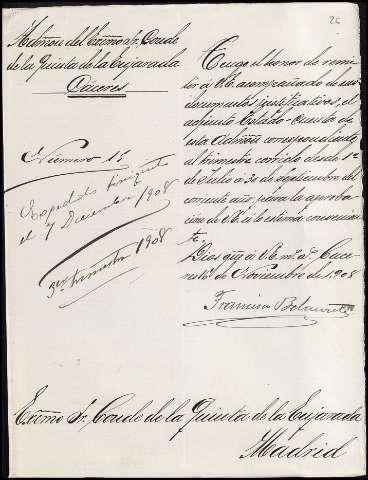 26
Admon del Excmo Sr. Conde
de la Quinta de la Enjarada
Cáceres
Número 15
Expedido finiquito
el 7 Diciembre 1908
3er trimestre 1908
Tengo el honor de remi
tir á V.E. acompañado de sus
documentos justificativos, el
adjunto Estado-Cuenta de
esta Admon correspondiente
al trimestre corrido desde 1º
de Julio á 30 de septiembre del
corriente año, para la aproba
ción de V.E. si lo estima convenien
te.
Dios gue á V.E. m. a. Cace
res de Noviembre de 1908
Francisco
Excmo Sr. Conde de la Quinta de la Enjarada
Madrid